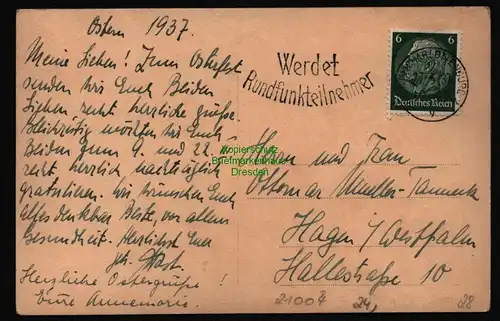 Ostern 1937.
Meine Lieben! Zum Osterfest
senden wir Euch Beiden
Lieben recht herzliche Grüße.
Gleichzeitig möchten wir Euch
Beiden zum 9. und 22. 
recht herzlich nachträglich
gratulieren. Wir wünschen Euch
alles denkbar Beste vor allem
Gesundheit. Herzlichst Euer
Herzliche Ostergrüße!
Eure Annemarie.
Werdet
Rundfunkteilnehmer
6 6
Deutsches Reich
Kopierschutz
Briefmarkenhaus
Dresden
und Frau
Ottomar Mueller-
Hagen i/Westfalen
Hallestraße 10
2100 24, 28